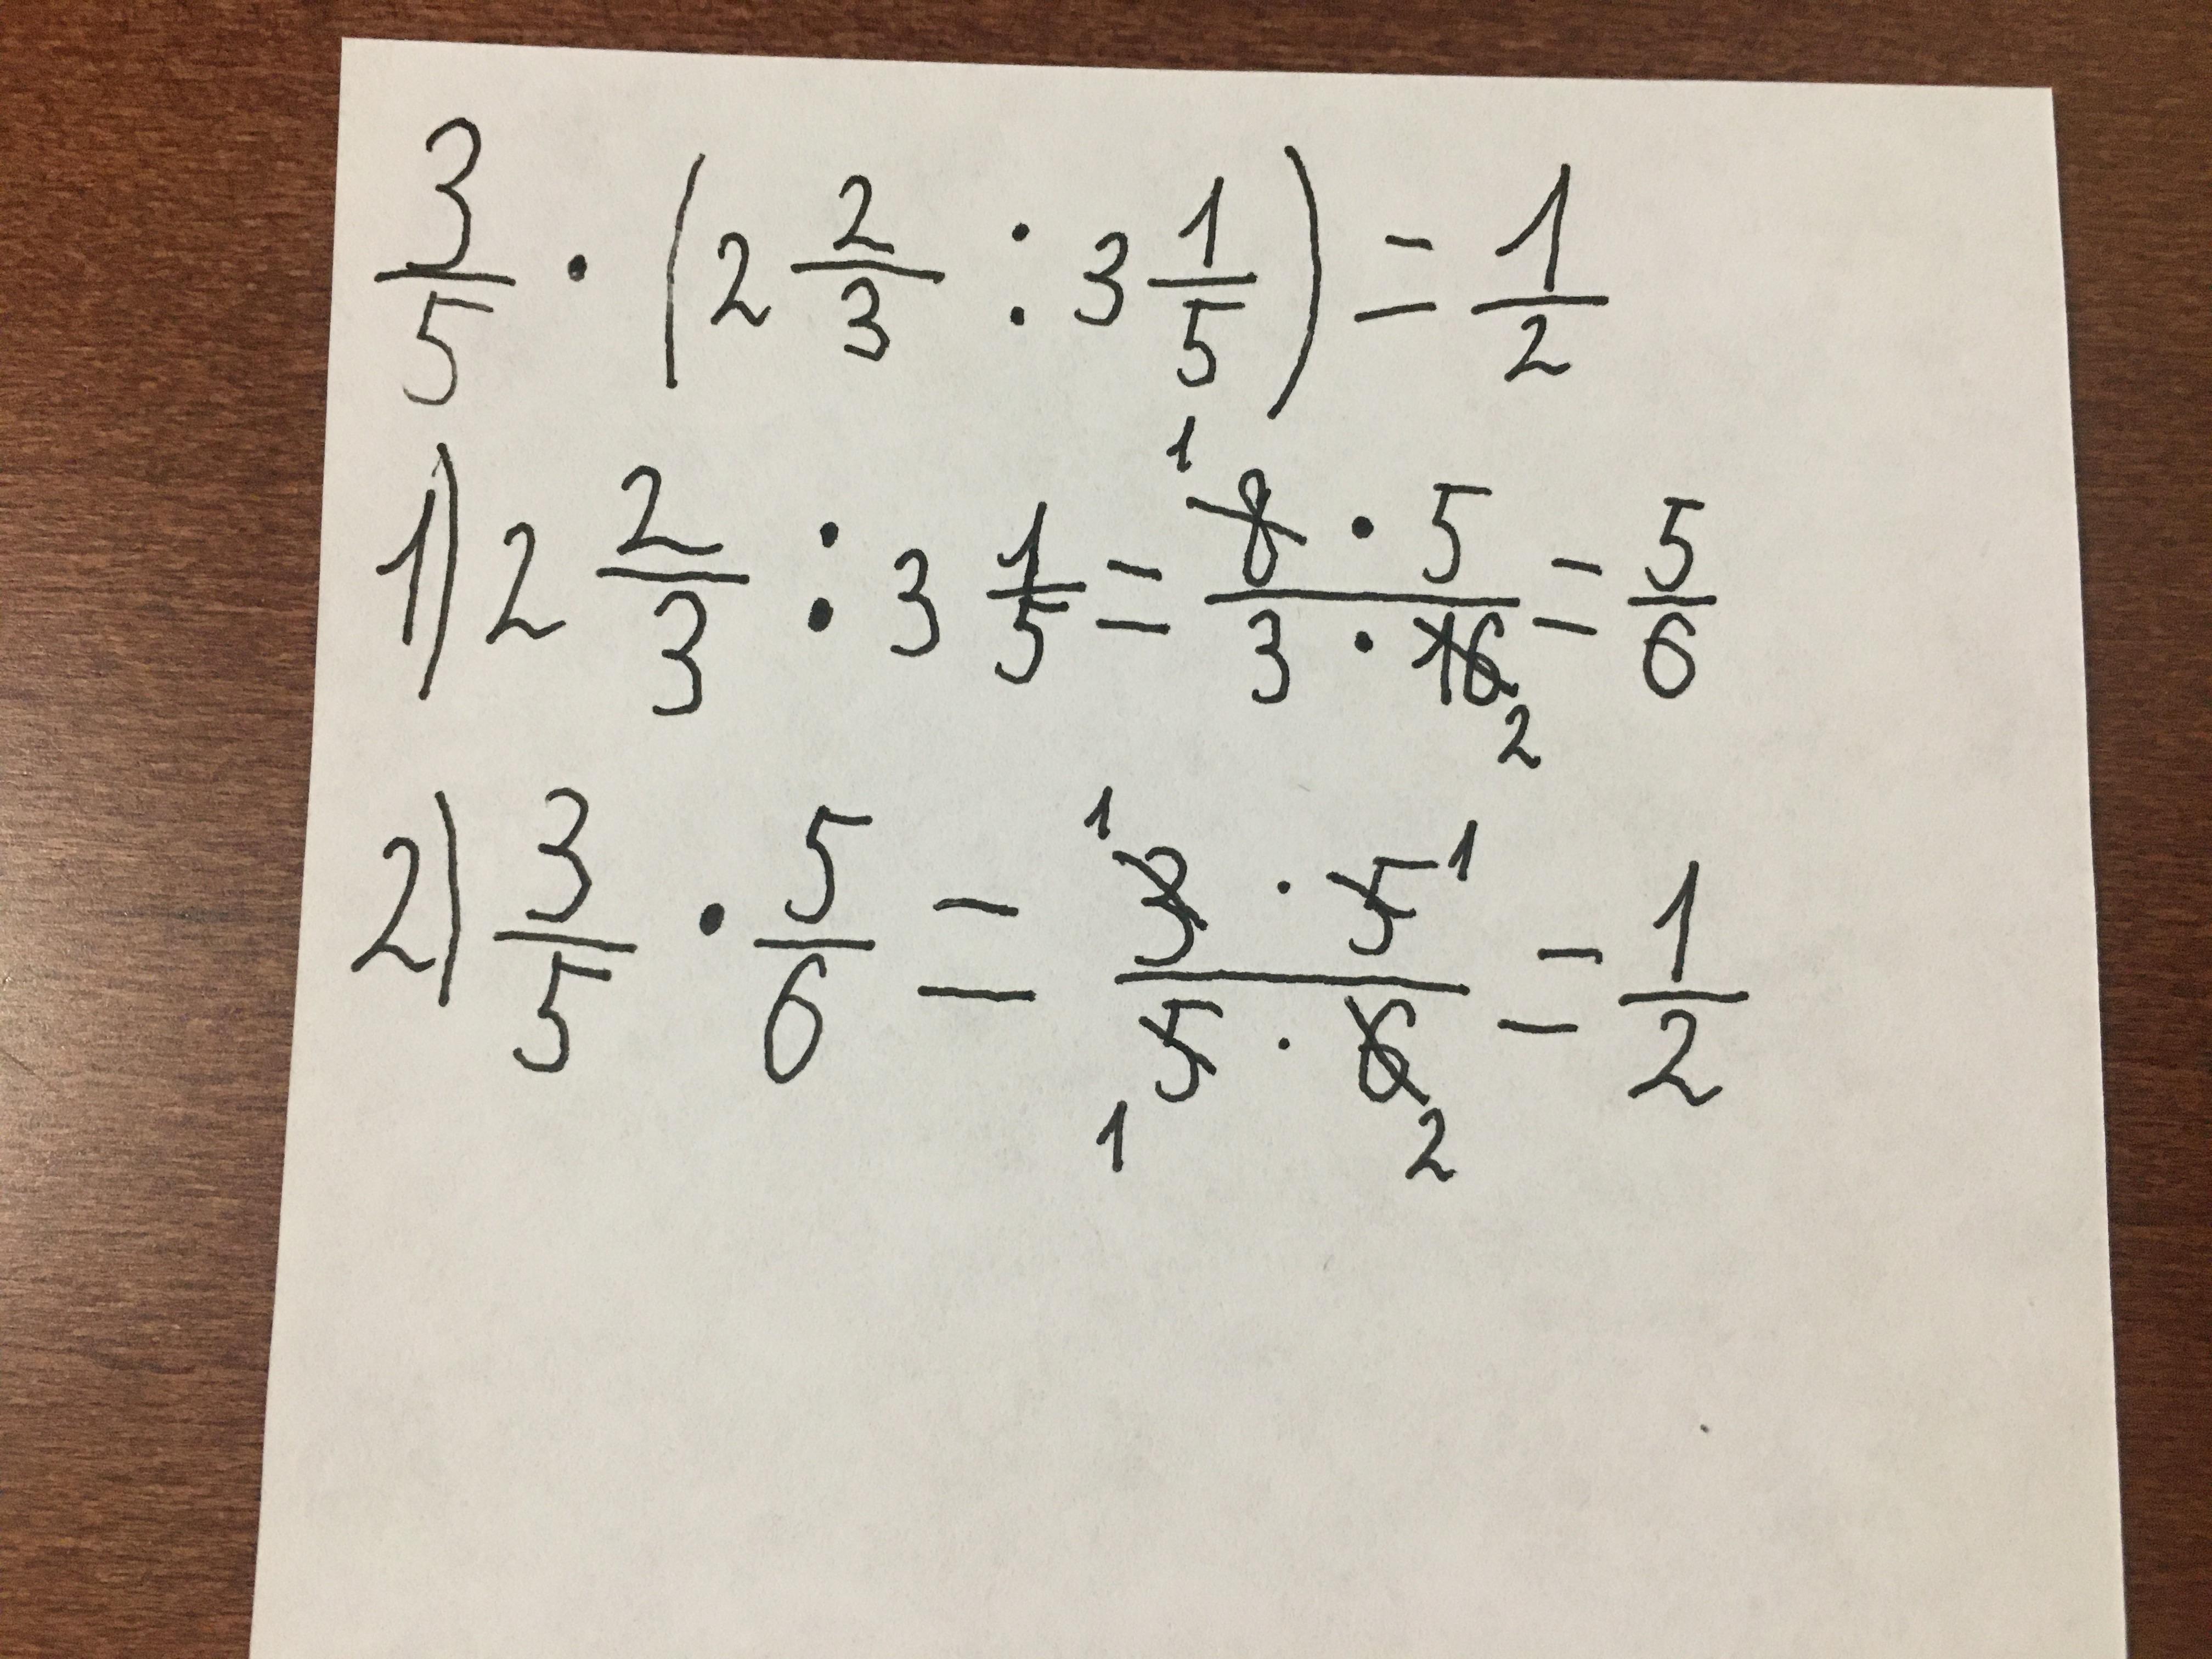 3/5 · (2 2/3 : 3 1/5) = 1/2
1) 2 2/3 : 3 1/5 = (8 1 · 5)/(3 · 16 2) = 5/6
2) 3/5 · 5/6 = (3 1 · 5 1)/(5 1 · 6 2) = 1/2